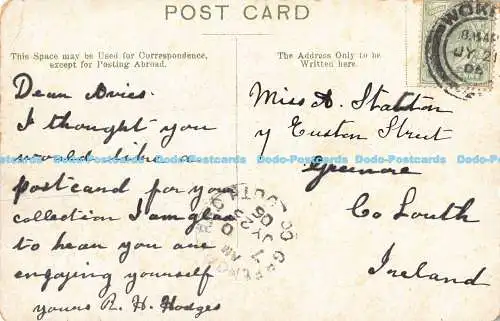 POST CARD
This Space may be Used for Correspondence,
except for Posting Abroad.
The Address Only to be
Written here.
Dear Avies.
I thought you
would like a
postcard for your
collection I am glad
to hear you are
enjoying yourself
yours R. H. Hodges
Miss A. Stratton
7 Euston Street
Greenore
Co Louth
Ireland
WOKI
JY 21
06
GREENORE
CO LOUTH
7 AM
JY 23
06
Dodo-Postcards Dodo-Postcards Dodo-Postcards Dodo-Postcards Dodo-Postcards